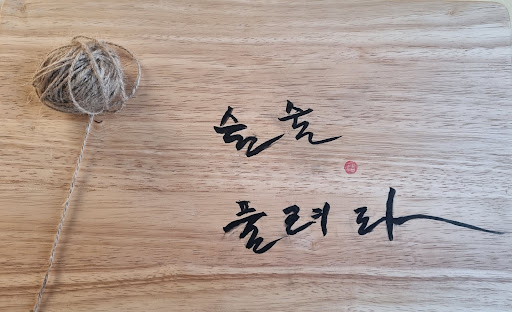 술술
풀려라